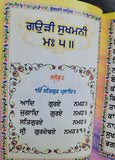 ਗਉੜੀ ਸੁਖਮਨੀ
ਮਃ ੫ ॥
ਸਲੋਕੁ ॥
ੴ ਸਤਿਗੁਰ ਪ੍ਰਸਾਦਿ ॥
ਆਦਿ ਗੁਰਏ ਨਮਹ ॥
ਜੁਗਾਦਿ ਗੁਰਏ ਨਮਹ ॥
ਸਤਿਗੁਰਏ ਨਮਹ ॥
ਸ੍ਰੀ ਗੁਰਦੇਵਏ ਨਮਹ ॥੧॥